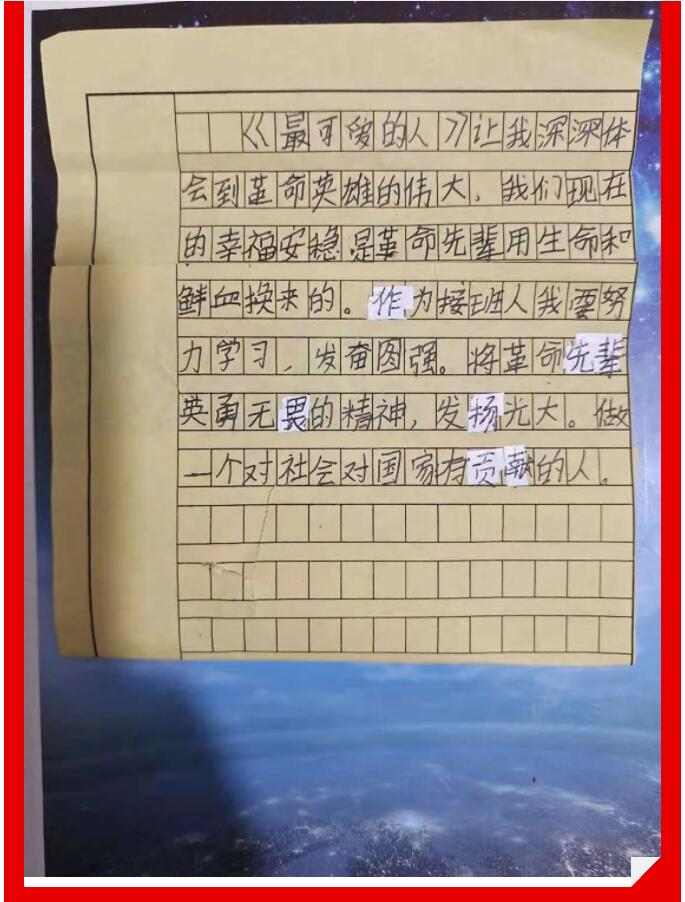 《最可爱的人》让我深深体
会到革命英雄的伟大，我们现在
的幸福安稳是革命先辈用生命和
鲜血换来的。作为接班人我要努
力学习，发奋图强。将革命先辈
英勇无畏的精神，发扬光大。做
一个对社会对国家有贡献的人。